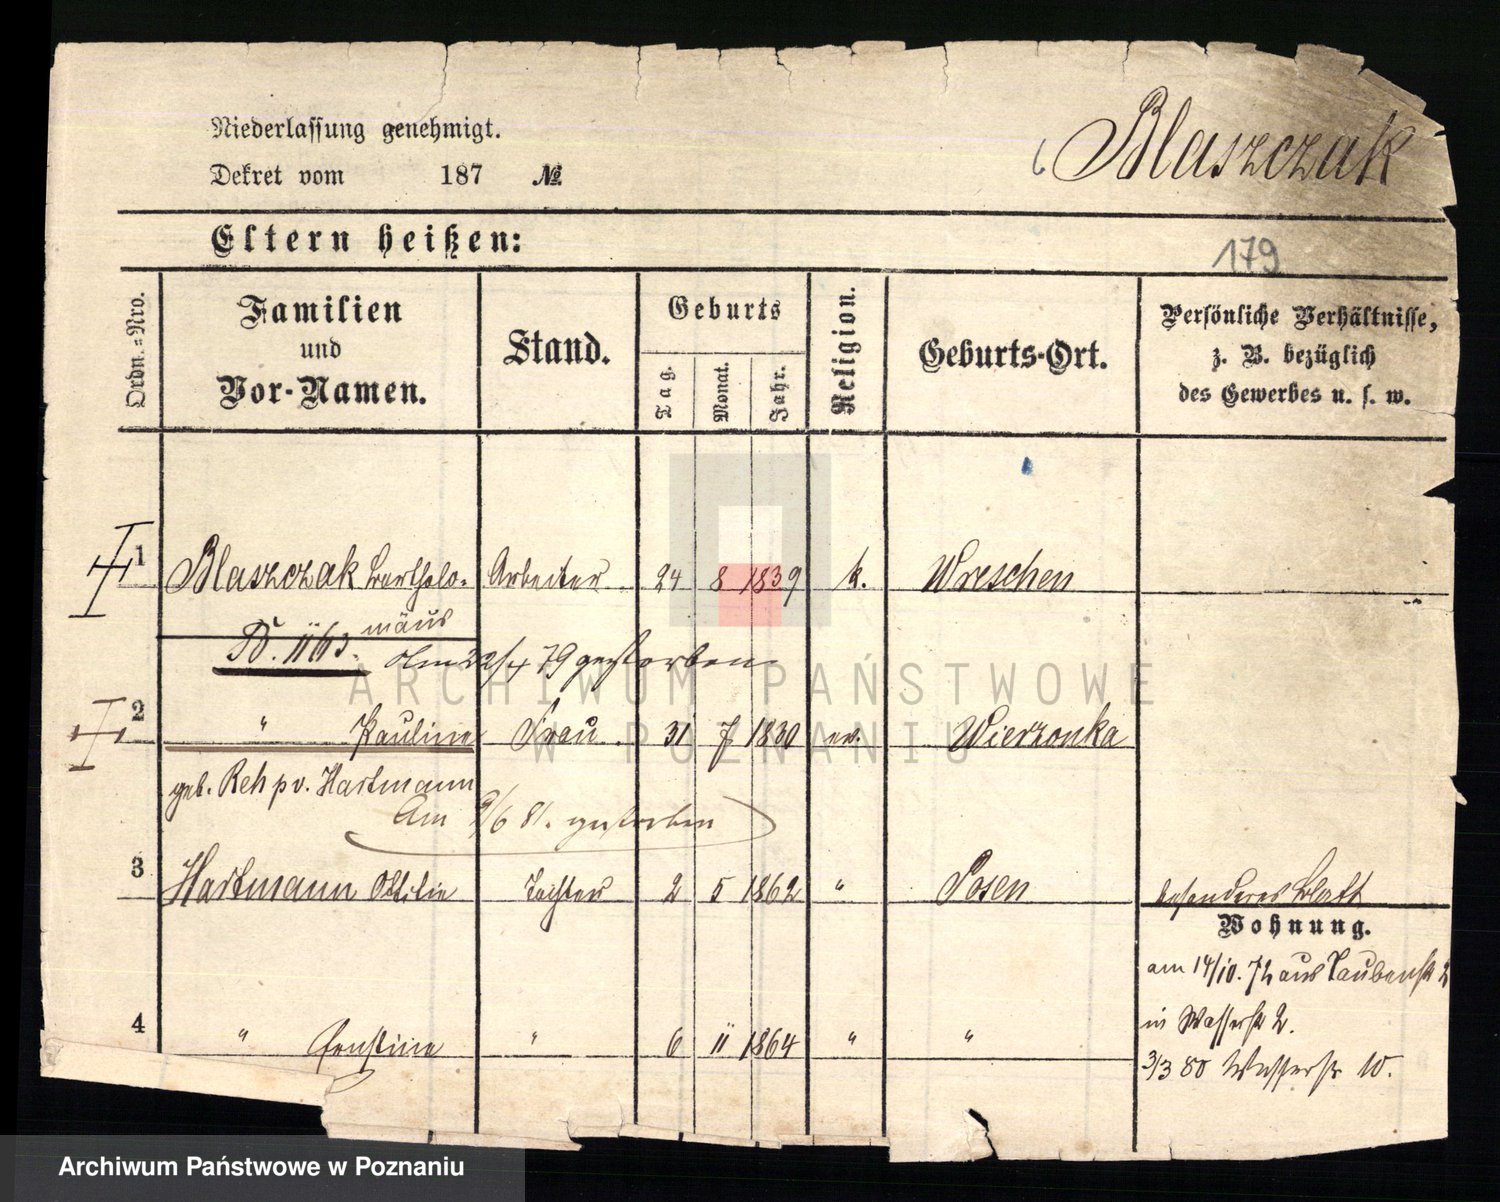 Niederlassung genehmigt.
Dekret vom 187 №
6 Blaszczak
Eltern heißen:
179
Ordn.=Nro.
Familien
und
Vor-Namen.
Stand.
Geburts
Tag.
Monat.
Jahr.
Religion.
Geburts-Ort.
Persönliche Verhältnisse,
z. B. bezüglich
des Gewerbes u. s. w.
1 Blaszczak Bartholo- Arbeiter 24 8 1839 k. Wreschen
mäus
am 22/4 79 gestorben
2 " Pauline Frau 31 7 1830 ev. Wierzonka
geb. Reh pv. Hartmann
Am 9/6 81. gestorben
3 Hartmann Ottilie Tochter 2 5 1862 " Posen besonderes Blatt
Wohnung.
am 14/10. 72 aus Taubenst 2
in Wasserst 2.
4 " Ernstine " 6 11 1864 " "
3/3 80 Wasserstr 10.
ARCHIWUM PAŃSTWOWE
W POZNANIU
Archiwum Państwowe w Poznaniu